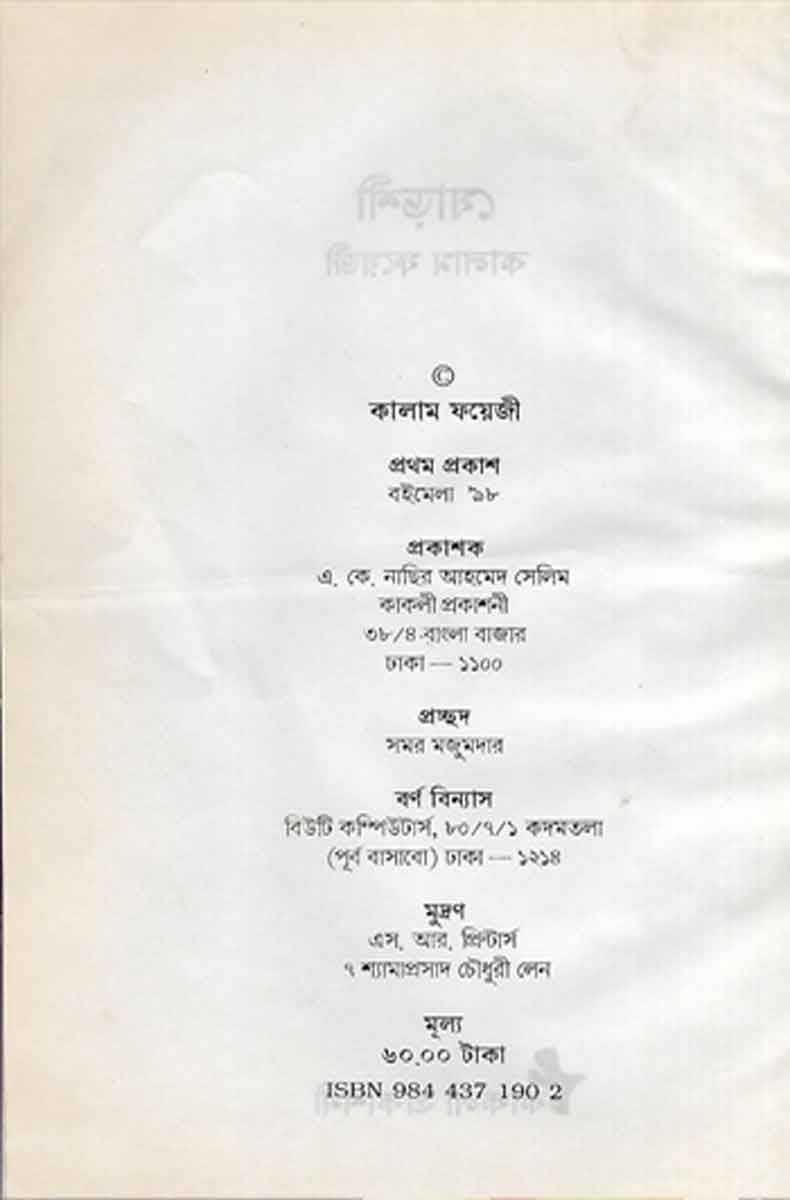 ©
কালাম ফয়েজী
প্রথম প্রকাশ
বইমেলা '৯৮
প্রকাশক
এ. কে. নাছির আহমেদ সেলিম
কাকলী প্রকাশনী
৩৮/৪ বাংলা বাজার
ঢাকা — ১১০০
প্রচ্ছদ
সমর মজুমদার
বর্ণ বিন্যাস
বিউটি কম্পিউটার্স, ৮০/৭/১ কদমতলা
(পূর্ব বাসাবো) ঢাকা — ১২১৪
মুদ্রণ
এস. আর. প্রিন্টার্স
৭ শ্যামাপ্রসাদ চৌধুরী লেন
মূল্য
৬০.০০ টাকা
ISBN 984 437 190 2